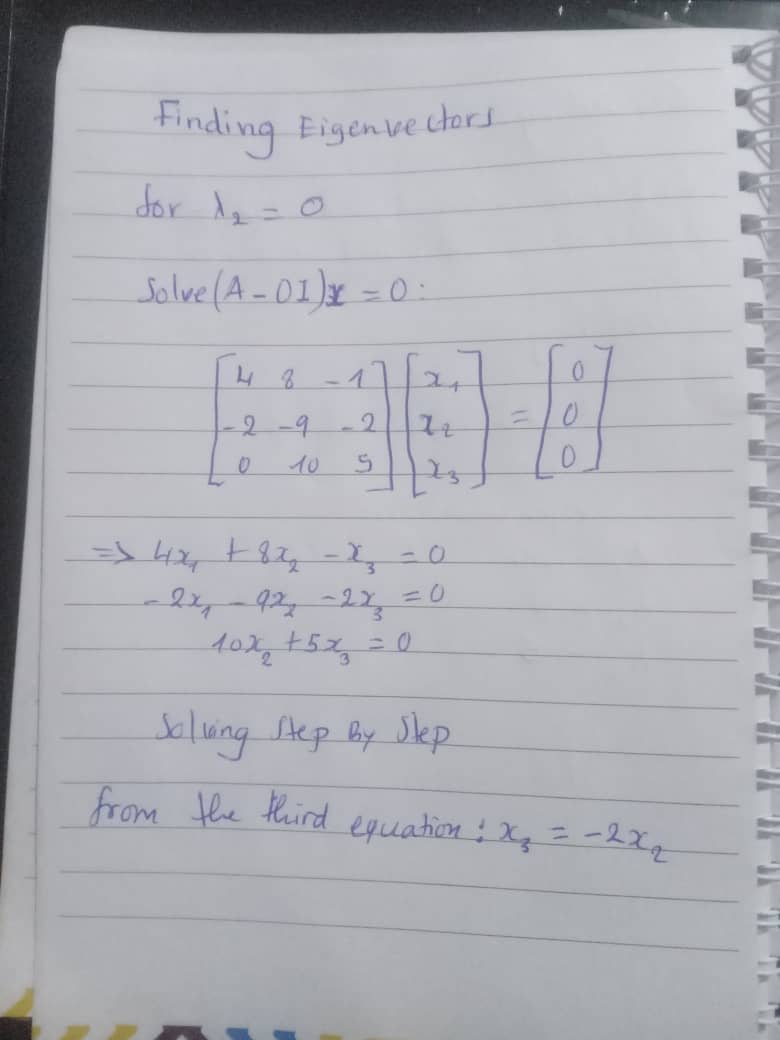 Finding Eigenvectors
for λ₂ = 0
Solve (A - 0I)x = 0:
[4 8 -1] [x₁] = [0]
[-2 -9 -2] [x₂] = [0]
[0 10 5] [x₃] = [0]
=> 4x₁ + 8x₂ - x₃ = 0
- 2x₁ - 9x₂ - 2x₃ = 0
10x₂ + 5x₃ = 0
Solving Step By Step
from the third equation: x₃ = -2x₂